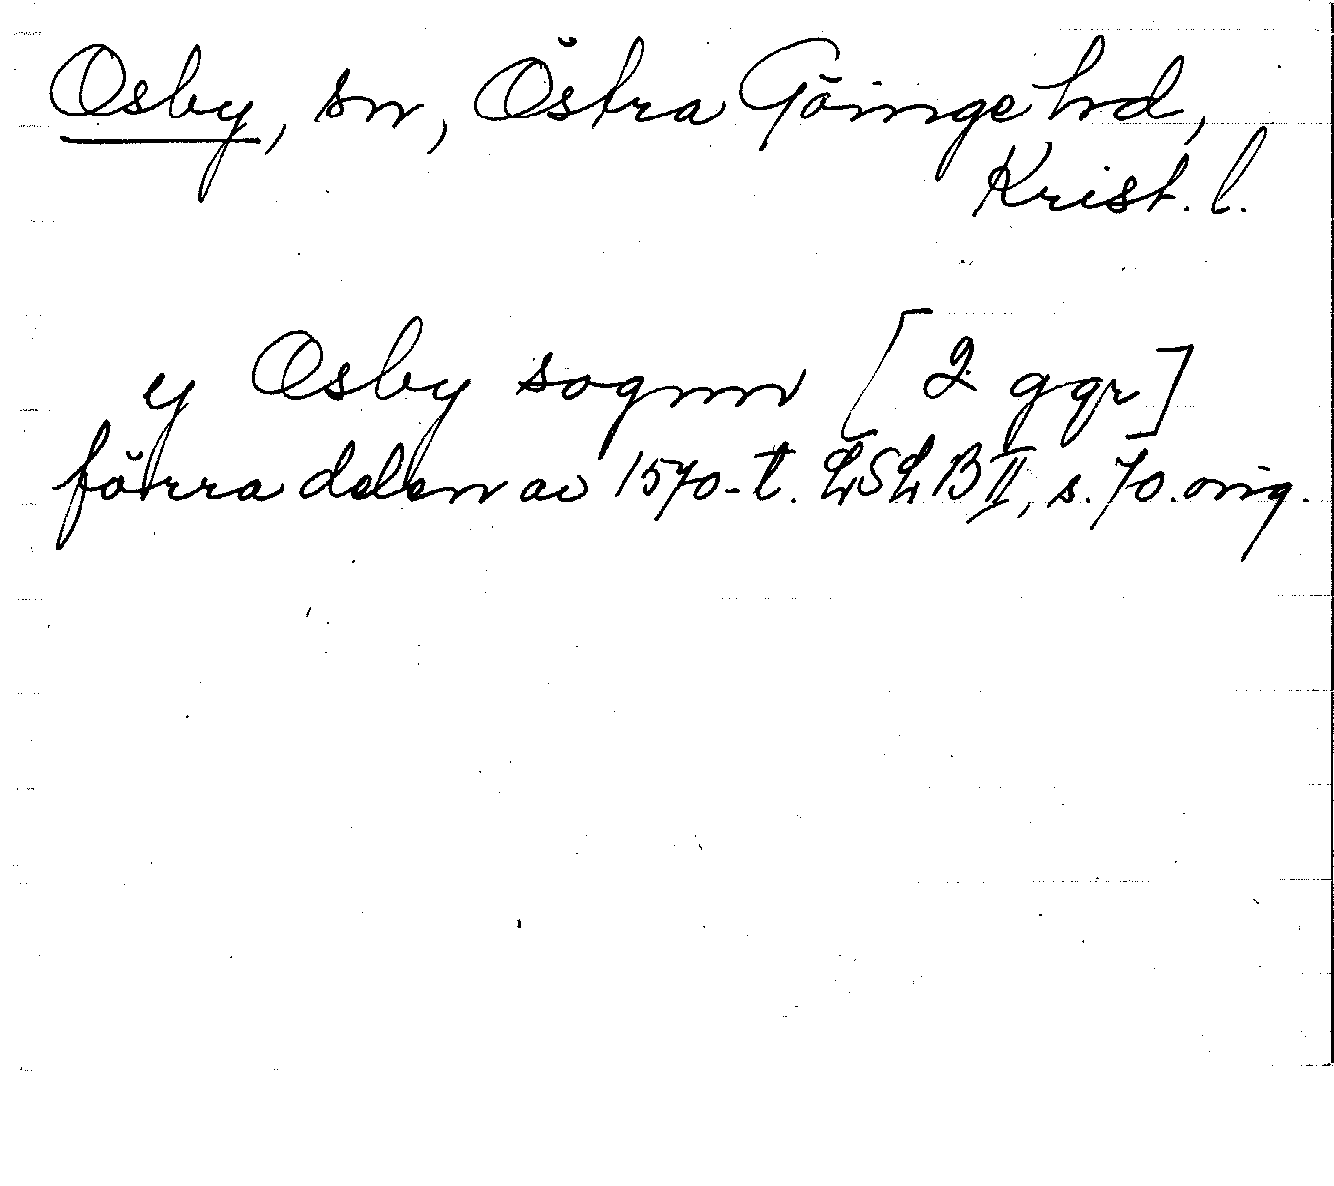 Osby, sn, Östra Göinge hd,
Krist. l.
y Osby sognn [2 ggr]
förra delen av 1570-t. LSLB II, s. 70. orig.